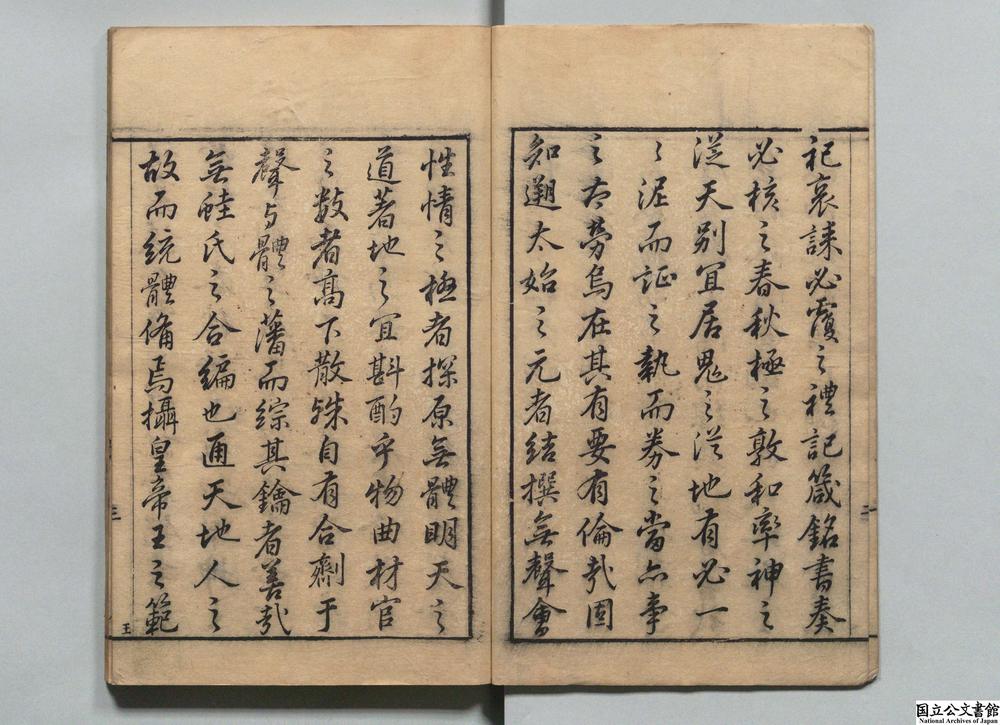 祀哀誄必覈之禮記箴銘書奏
必核之春秋極之敦和率神之
從天別宜居鬼之從地有必一
〻泥而証之執而券之當亦事
之太勞烏在其有要有倫哉固
知遡太始之元者結撰無聲會
性情之極者探原無體明天之
道著地之宜斟酌乎物曲材官
之数者高下散殊自有合劑于
聲与體之藩而綜其鑰者善哉
無蛙氏之合編也通天地人之
故而統體俻焉攝皇帝王之範
二
三
王
国立公文書館
National Archives of Japan